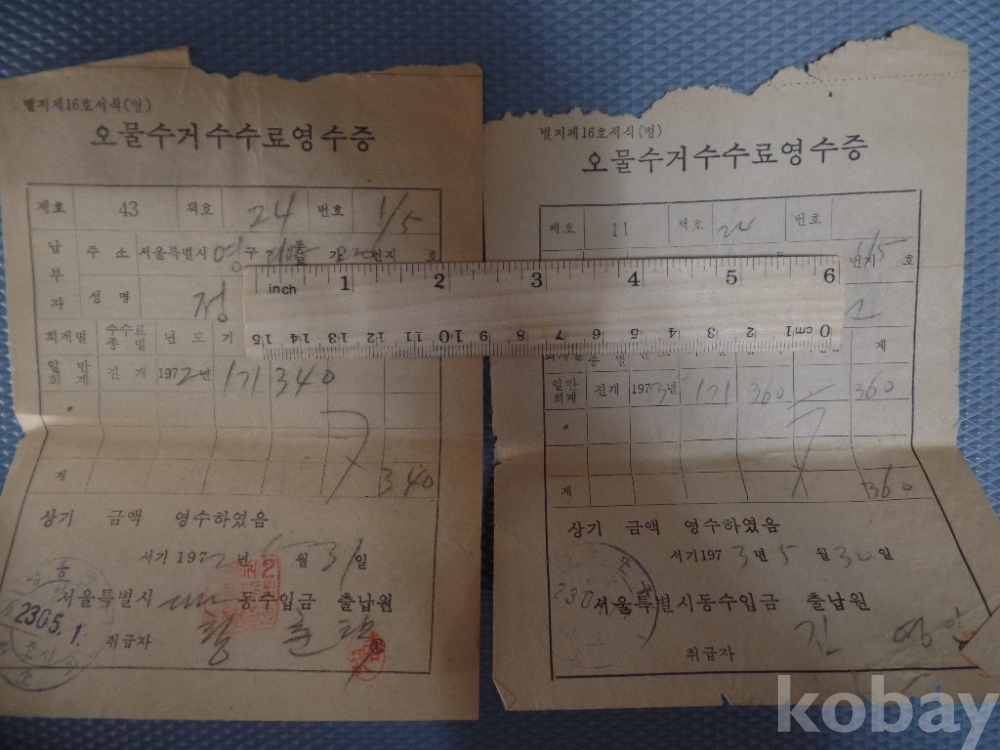 별지제16호서식(병)
오물수거수수료영수증
제호 43 책호 24 번호 1/5
납부자 주소 서울특별시 영 구 가 번지 호
성명 정
회계별 수수료종별 년도 기
일반회계 진개 1972년 171 340
계 340
상기 금액 영수하였음
서기 1972년 5월 31일
서울특별시 동수입금 출납원
취급자
2305.1
별지제16호서식(병)
오물수거수수료영수증
제호 11 책호 24 번호
번지 1/5 호
inch 1 2 3 4 5 6
15 14 13 12 11 10 9 8 7 6 5 4 3 2 1cm 0
계
일반회계 진개 1973년 171 360 360
계 360
상기 금액 영수하였음
서기 1973년 5월 30일
230
서울특별시동수입금 출납원
취급자 김영안
kobay